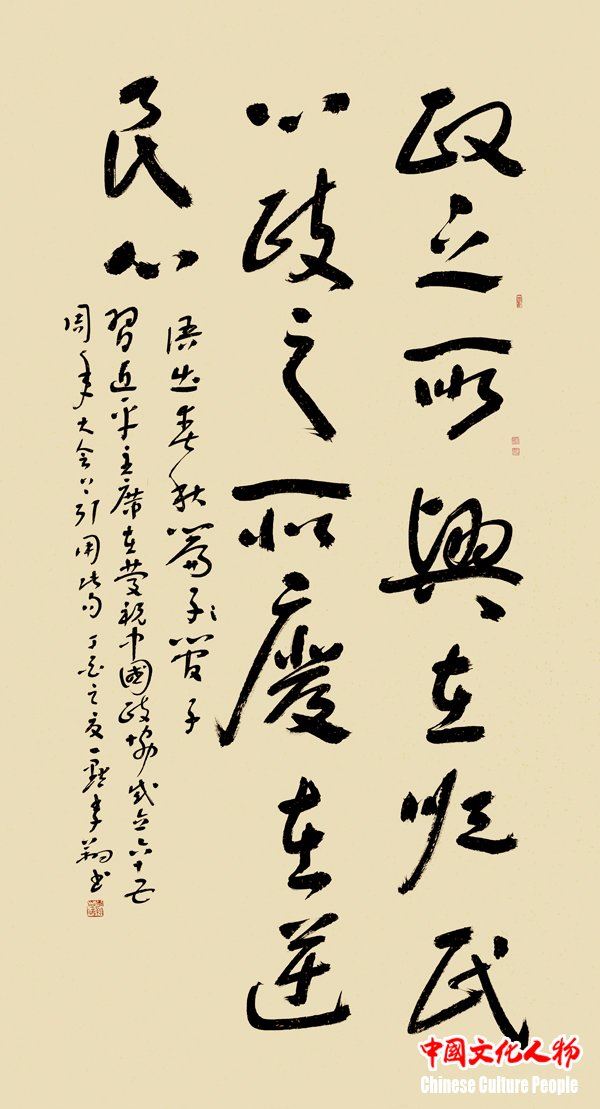 政之所興在順民
心政之所廢在逆
民心
語出春秋管子
習近平主席在慶祝中國政協成立六十五
周年大會上引用此句 丁酉之夏 李翔書
中國文化人物
Chinese Culture People